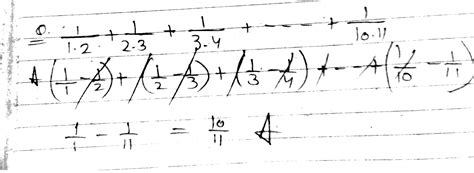 Q. 1/1.2 + 1/2.3 + 1/3.4 + ---- + 1/10.11
A (1/1 - 1/2) + (1/2 - 1/3) + (1/3 - 1/4) + -- + (1/10 - 1/11)
1/1 - 1/11 = 10/11 A